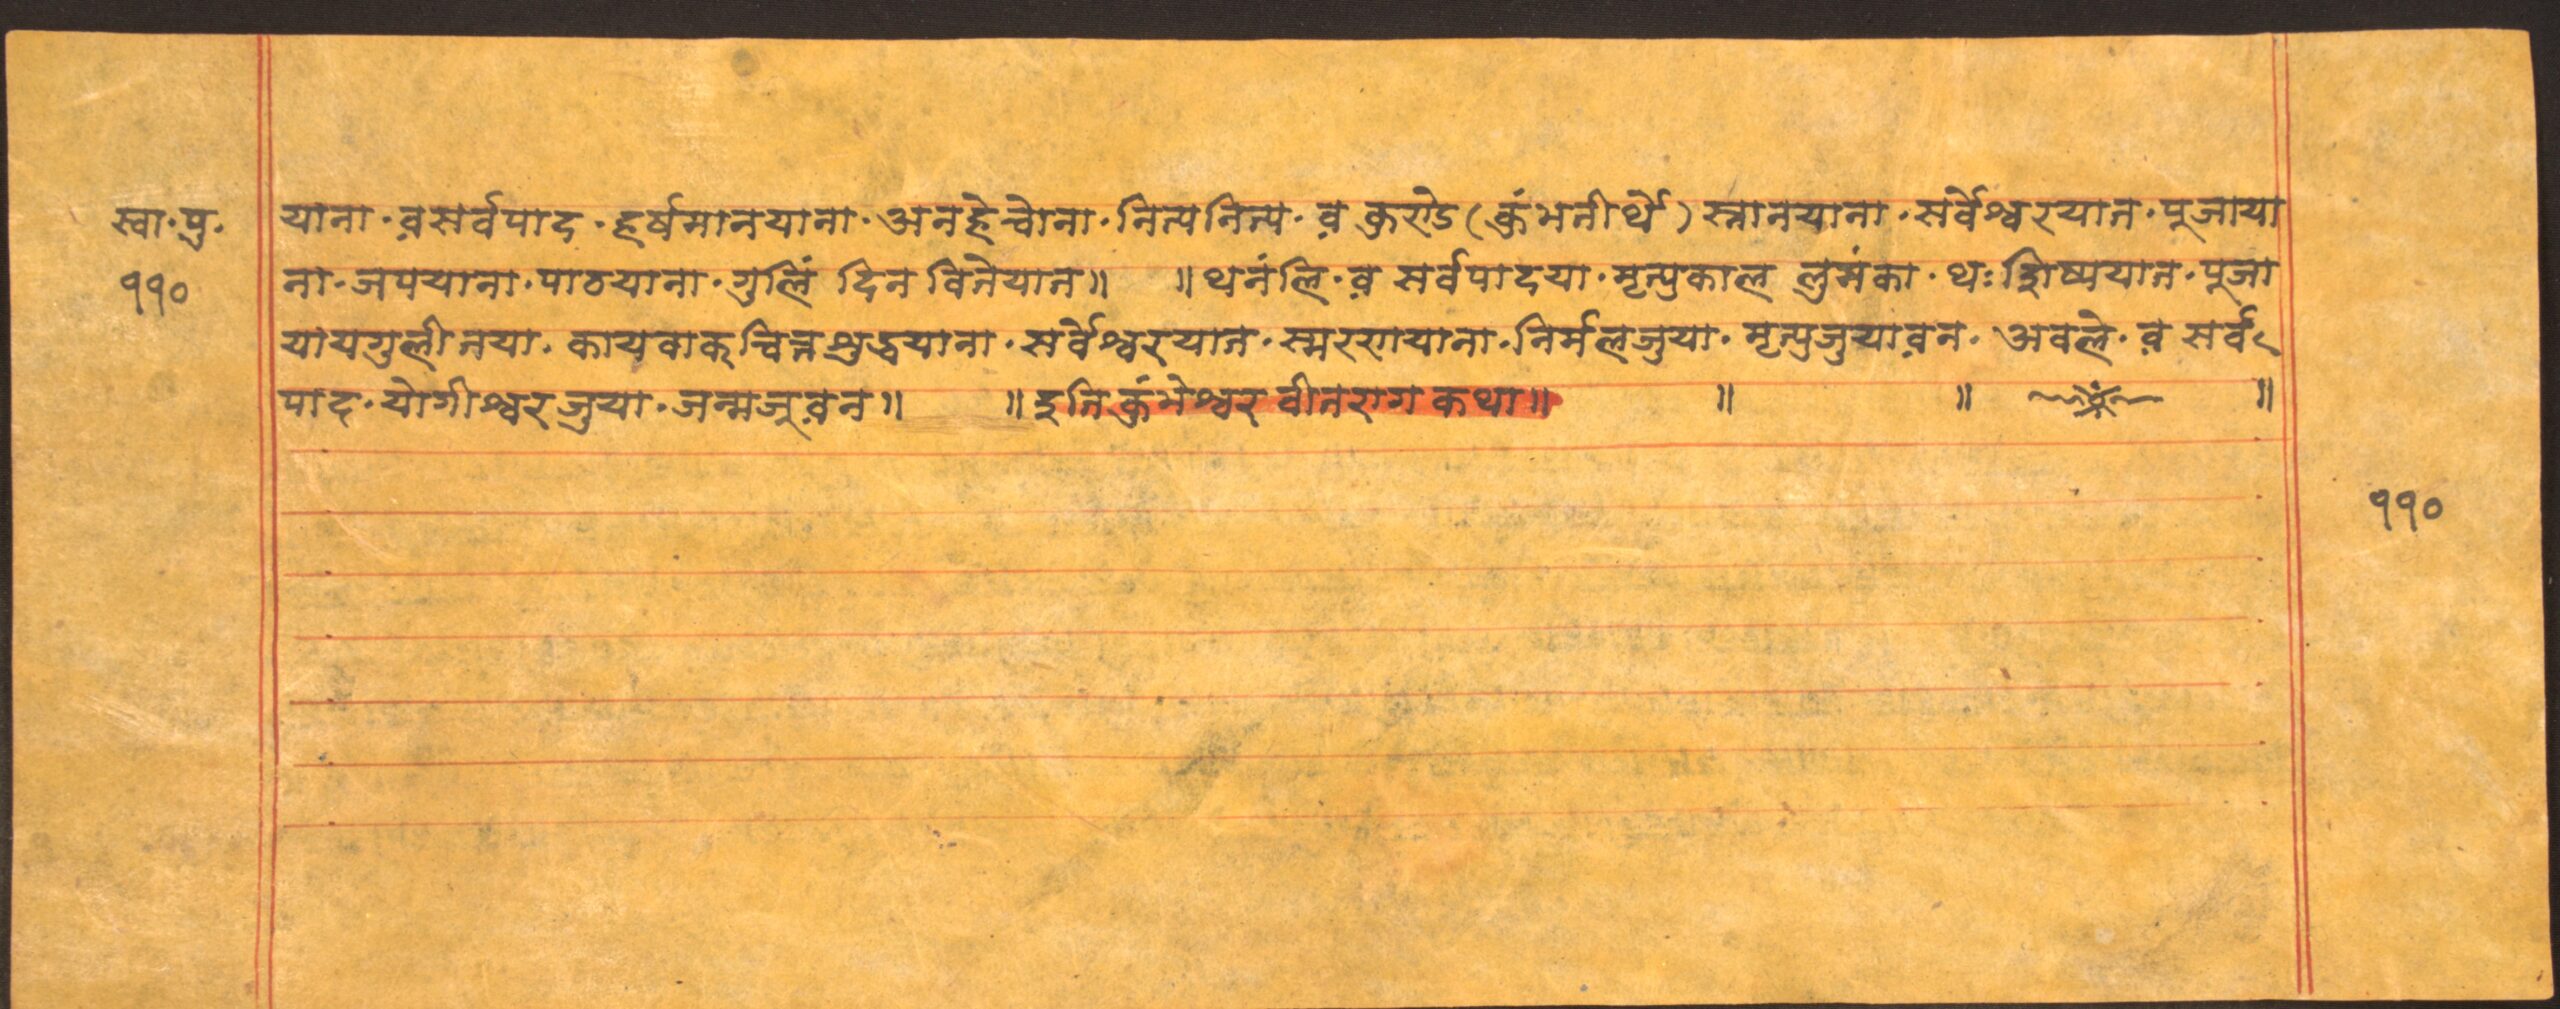 स्वा·पु· याना·व़सर्वपाद·हर्षमानयाना·अनहेच्वोना·नित्यनित्य·व़ कुराडे (कुंभतीर्थे) स्नानयाना·सर्वेश्वरयात·पूजाया
११० ना·जपयाना·पाठयाना·गुलिं दिन वितेयात॥ ॥थनंलि·व़ सर्वपादया·मृत्युकाल लुमंका·थः शिष्ययात·पूजा
यायगुलीतया·कायवाक्चित्तशुद्धयाना·सर्वेश्वरयात·स्मरणयाना·निर्मलजुया·मृत्युजुयाव़न·अवले·व़ सर्व
पाद·योगीश्वरजुया·जन्मजूव़न॥ ॥इति कुंभेश्वर वीतराग कथा॥ ॥ ॥ ॥
११०